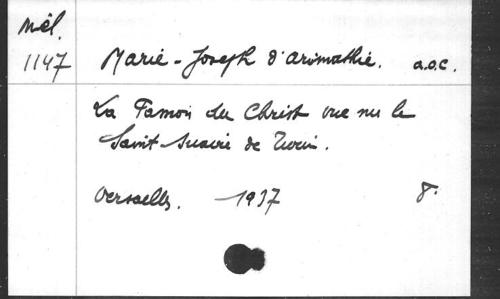 Mél.
1147 Marie-Joseph d'Arimathie. a.o.c.
La Passion du Christ vue sur le
Saint Suaire de Turin.
Versailles. 1937 8°.